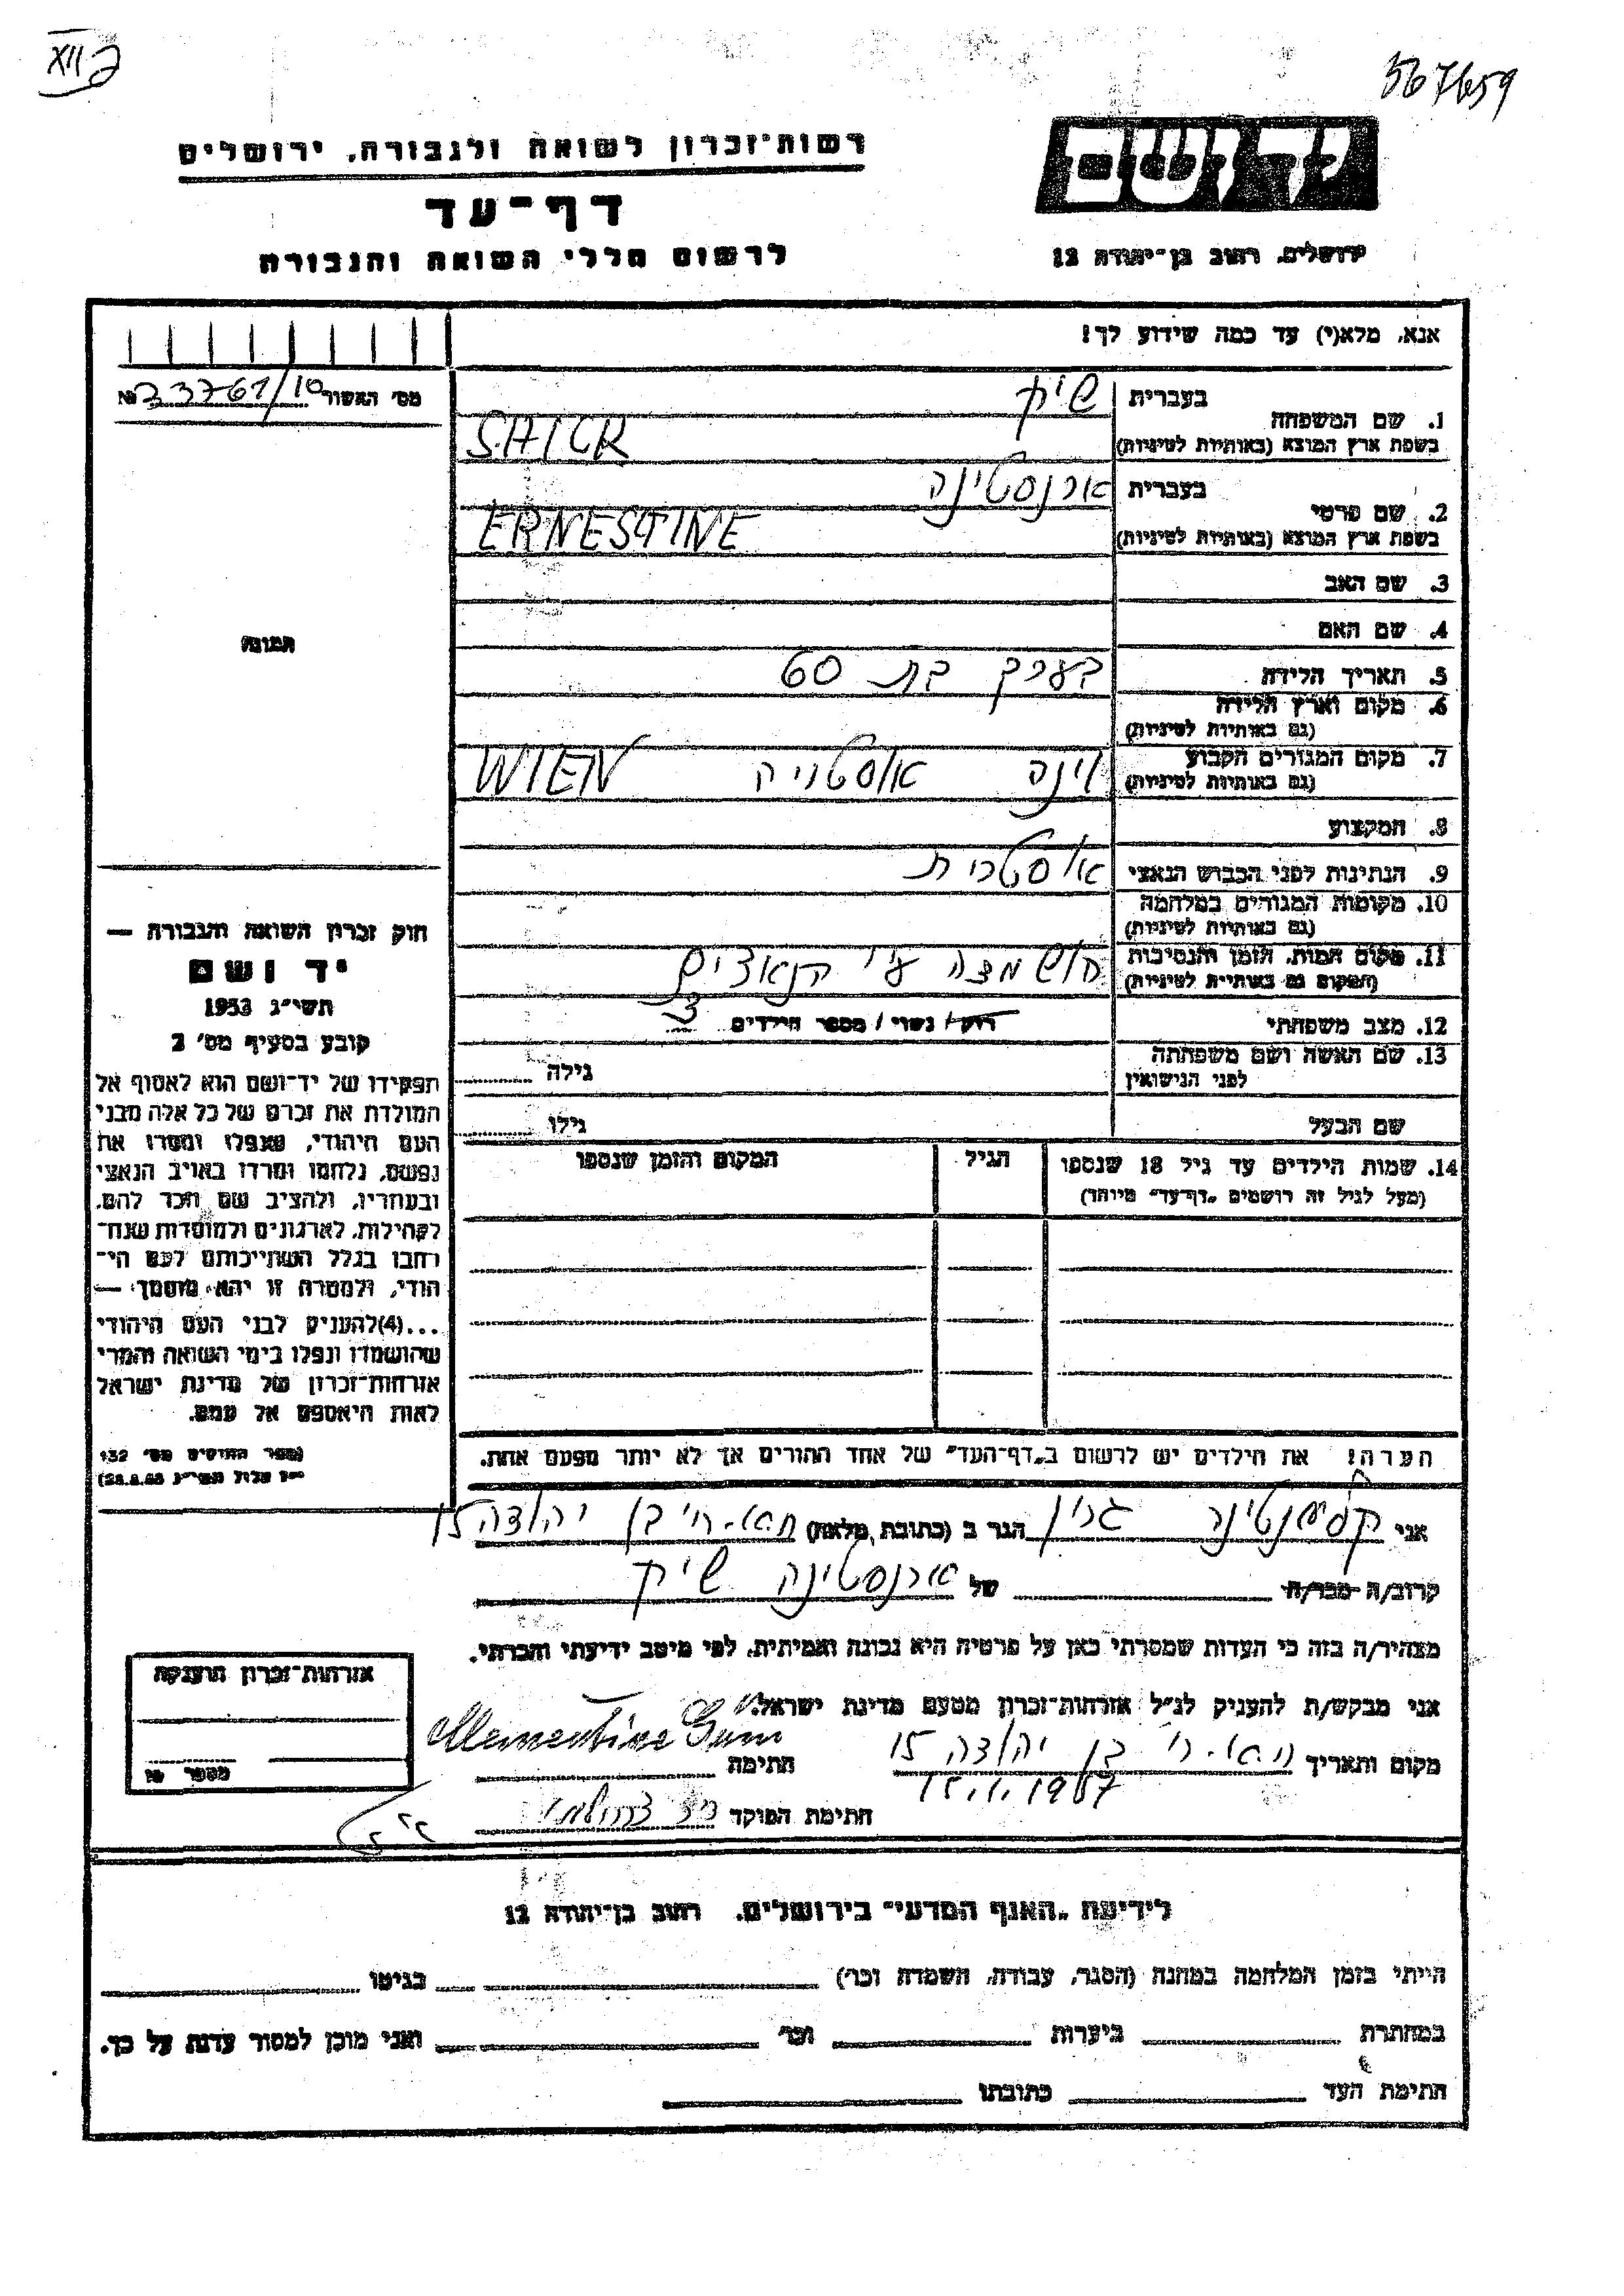 XII 2
567659
רשות־זכרון לשואה ולגבורה, ירושלים
דף־עד
לרשום חללי השואה והגבורה
יד ושם
ירושלים, רחוב בן־יהודה 12
אנא, מלא(י) עד כמה שידוע לך!
מס׳ האשור № 33761/10
תמונה
1. שם המשפחה
בעברית שיק
בשפת ארץ המוצא (באותיות לטיניות) SHICK
2. שם פרטי
בעברית ארנסטינה
בשפת ארץ המוצא (באותיות לטיניות) ERNESTINE
3. שם האב
4. שם האם
5. תאריך הלידה בערך בת 60
6. מקום וארץ הלידה
(גם באותיות לטיניות)
7. מקום המגורים הקבוע וינה אוסטריה WIEN
(גם באותיות לטיניות)
8. המקצוע
9. הנתינות לפני הכבוש הנאצי אוסטרית
10. מקומות המגורים במלחמה
(גם באותיות לטיניות)
11. מקום המות, הזמן והנסיבות הושמדה ע״י הנאצים
(המקום גם באותיות לטיניות)
12. מצב משפחתי רווק / נשוי / מספר הילדים 3
13. שם האשה ושם משפחתה גילה
לפני הנישואין
שם הבעל גילו
14. שמות הילדים עד גיל 18 שנספו הגיל המקום והזמן שנספו
(מעל לגיל זה רושמים „דף־עד״ מיוחד)
חוק זכרון השואה והגבורה —
יד ושם
תשי״ג 1953
קובע בסעיף מס׳ 2
תפקידו של יד־ושם הוא לאסוף אל
המולדת את זכרם של כל אלה מבני
העם היהודי, שנפלו ומסרו את
נפשם, נלחמו ומרדו באויב הנאצי
ובעוזריו, ולהציב שם וזכר להם,
לקהילות, לארגונים ולמוסדות שנח־
רבו בגלל השתייכותם לעם הי־
הודי, ולמטרה זו יהא מוסמך —
...(4)להעניק לבני העם היהודי
שהושמדו ונפלו בימי השואה והמרי
אזרחות־זכרון של מדינת ישראל
לאות היאספם אל עמם.
(ספר החוקים מס׳ 132
הערה! את הילדים יש לרשום ב„דף־העד״ של אחד ההורים אך לא יותר מפעם אחת.
אני קלמנטינה גרין הגר ב (כתובת מלאה) ת״א. רח׳ בן יהודה 15
קרוב/ה מכר/ה של ארנסטינה שיק
מצהיר/ה בזה כי העדות שמסרתי כאן על פרטיה היא נכונה ואמיתית, לפי מיטב ידיעתי והכרתי.
אני מבקש/ת להעניק לנ״ל אזרחות־זכרון מטעם מדינת ישראל.
מקום ותאריך ת״א. רח׳ בן יהודה 15 חתימה
15.1.1957
חתימת הפוקד
אזרחות־זכרון הוענקה
מספר №
לידיעת „האגף המדעי״ בירושלים, רחוב בן־יהודה 12
הייתי בזמן המלחמה במחנה (הסגר, עבודה, השמדה וכו׳) בגיטו
במחתרת ביערות וכו׳ ואני מוכן למסור עדות על כך.
חתימת העד כתובתו